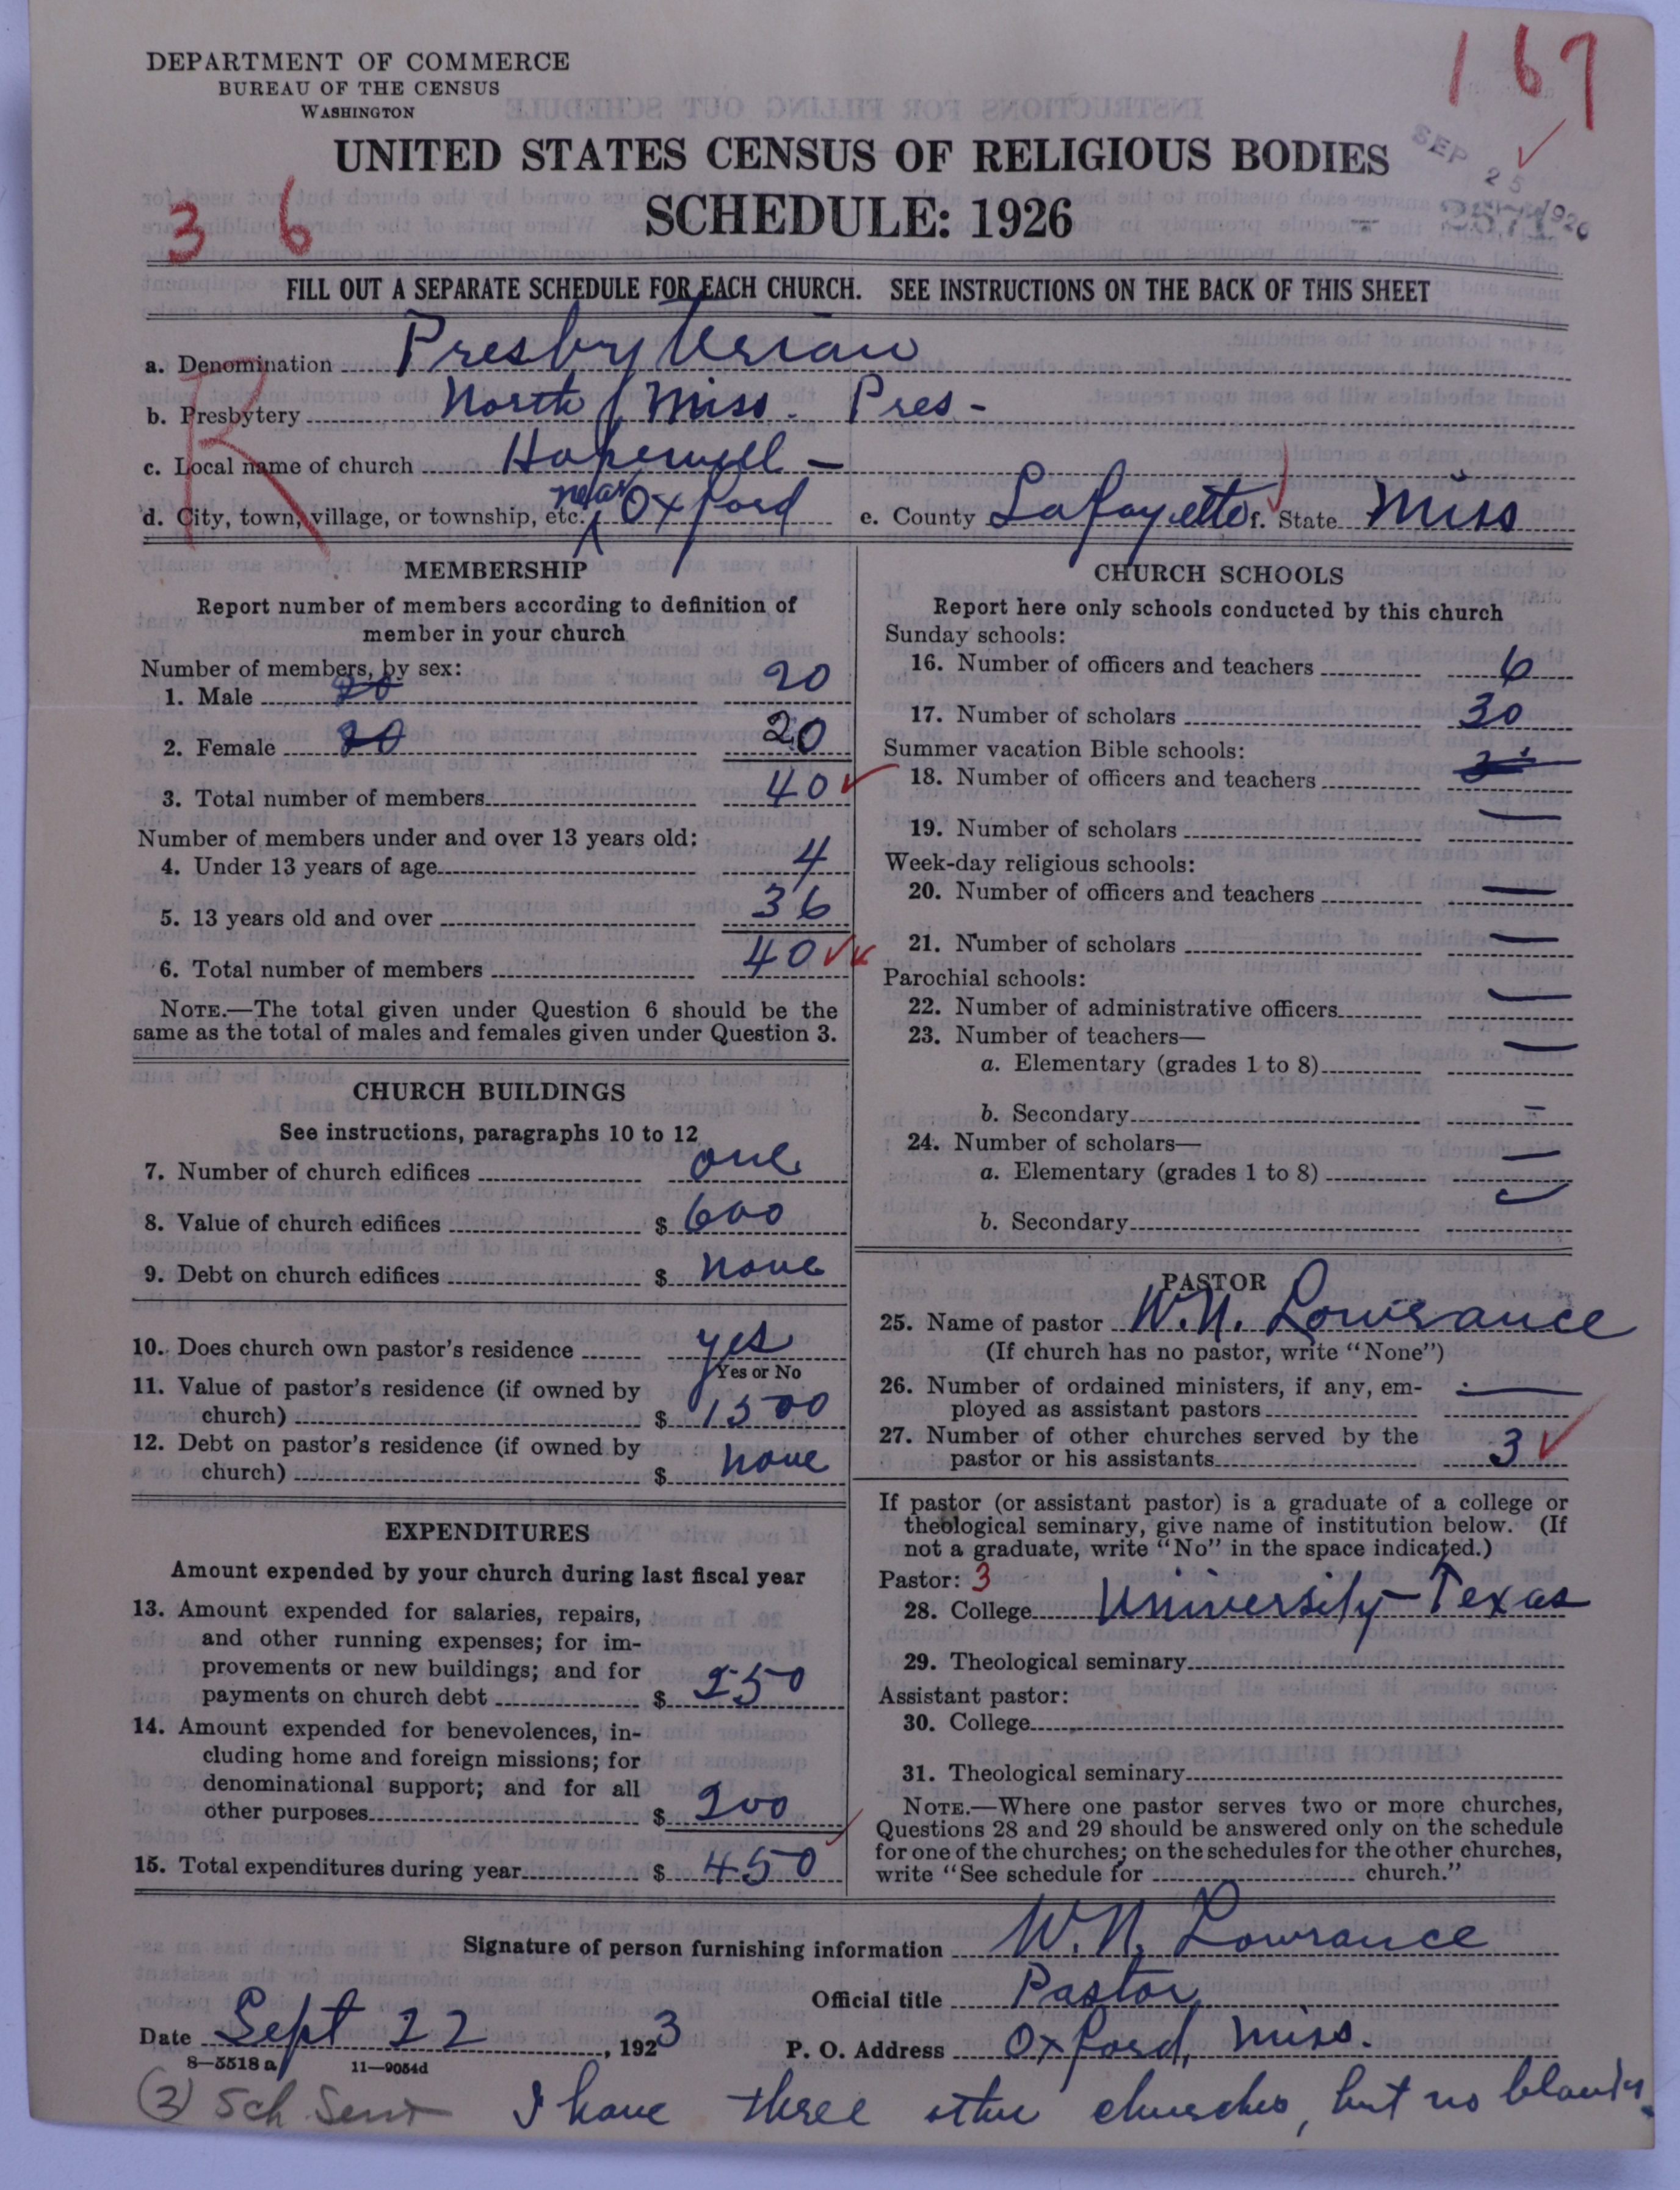 167
DEPARTMENT OF COMMERCE
BUREAU OF THE CENSUS
WASHINGTON
UNITED STATES CENSUS OF RELIGIOUS BODIES
SEP 25 1926
SCHEDULE: 1926
36
FILL OUT A SEPARATE SCHEDULE FOR EACH CHURCH. SEE INSTRUCTIONS ON THE BACK OF THIS SHEET
R
a. Denomination Presbyterian
b. Presbytery North Miss. Pres-
c. Local name of church Hopewell -
d. City, town, village, or township, etc. near Oxford e. County Lafayette f. State Miss
MEMBERSHIP
Report number of members according to definition of
member in your church
Number of members, by sex:
1. Male 20 20
2. Female 20 20
3. Total number of members 40
Number of members under and over 13 years old:
4. Under 13 years of age 4
5. 13 years old and over 36
6. Total number of members 40
NOTE.—The total given under Question 6 should be the
same as the total of males and females given under Question 3.
CHURCH BUILDINGS
See instructions, paragraphs 10 to 12
7. Number of church edifices one
8. Value of church edifices $ 600
9. Debt on church edifices $ none
10. Does church own pastor's residence yes
Yes or No
11. Value of pastor's residence (if owned by
church) $ 1500
12. Debt on pastor's residence (if owned by
church) $ none
EXPENDITURES
Amount expended by your church during last fiscal year
13. Amount expended for salaries, repairs,
and other running expenses; for im-
provements or new buildings; and for
payments on church debt $ 250
14. Amount expended for benevolences, in-
cluding home and foreign missions; for
denominational support; and for all
other purposes $ 200
15. Total expenditures during year $ 450
CHURCH SCHOOLS
Report here only schools conducted by this church
Sunday schools:
16. Number of officers and teachers 6
17. Number of scholars 30
Summer vacation Bible schools:
18. Number of officers and teachers
19. Number of scholars —
Week-day religious schools:
20. Number of officers and teachers —
21. Number of scholars —
Parochial schools:
22. Number of administrative officers —
23. Number of teachers—
a. Elementary (grades 1 to 8) —
b. Secondary —
24. Number of scholars—
a. Elementary (grades 1 to 8) —
b. Secondary —
PASTOR
25. Name of pastor W. N. Lowrance
(If church has no pastor, write "None")
26. Number of ordained ministers, if any, em-
ployed as assistant pastors —
27. Number of other churches served by the
pastor or his assistants 3
If pastor (or assistant pastor) is a graduate of a college or
theological seminary, give name of institution below. (If
not a graduate, write "No" in the space indicated.)
Pastor: 3
28. College University - Texas
29. Theological seminary
Assistant pastor:
30. College
31. Theological seminary
NOTE.—Where one pastor serves two or more churches,
Questions 28 and 29 should be answered only on the schedule
for one of the churches; on the schedules for the other churches,
write "See schedule for church."
Signature of person furnishing information W. N. Lowrance
Official title Pastor
Date Sept 22, 1923 P. O. Address Oxford, Miss.
8—5518 a 11—9054d
(3) Sch Sent I have three other churches, but no blanks.